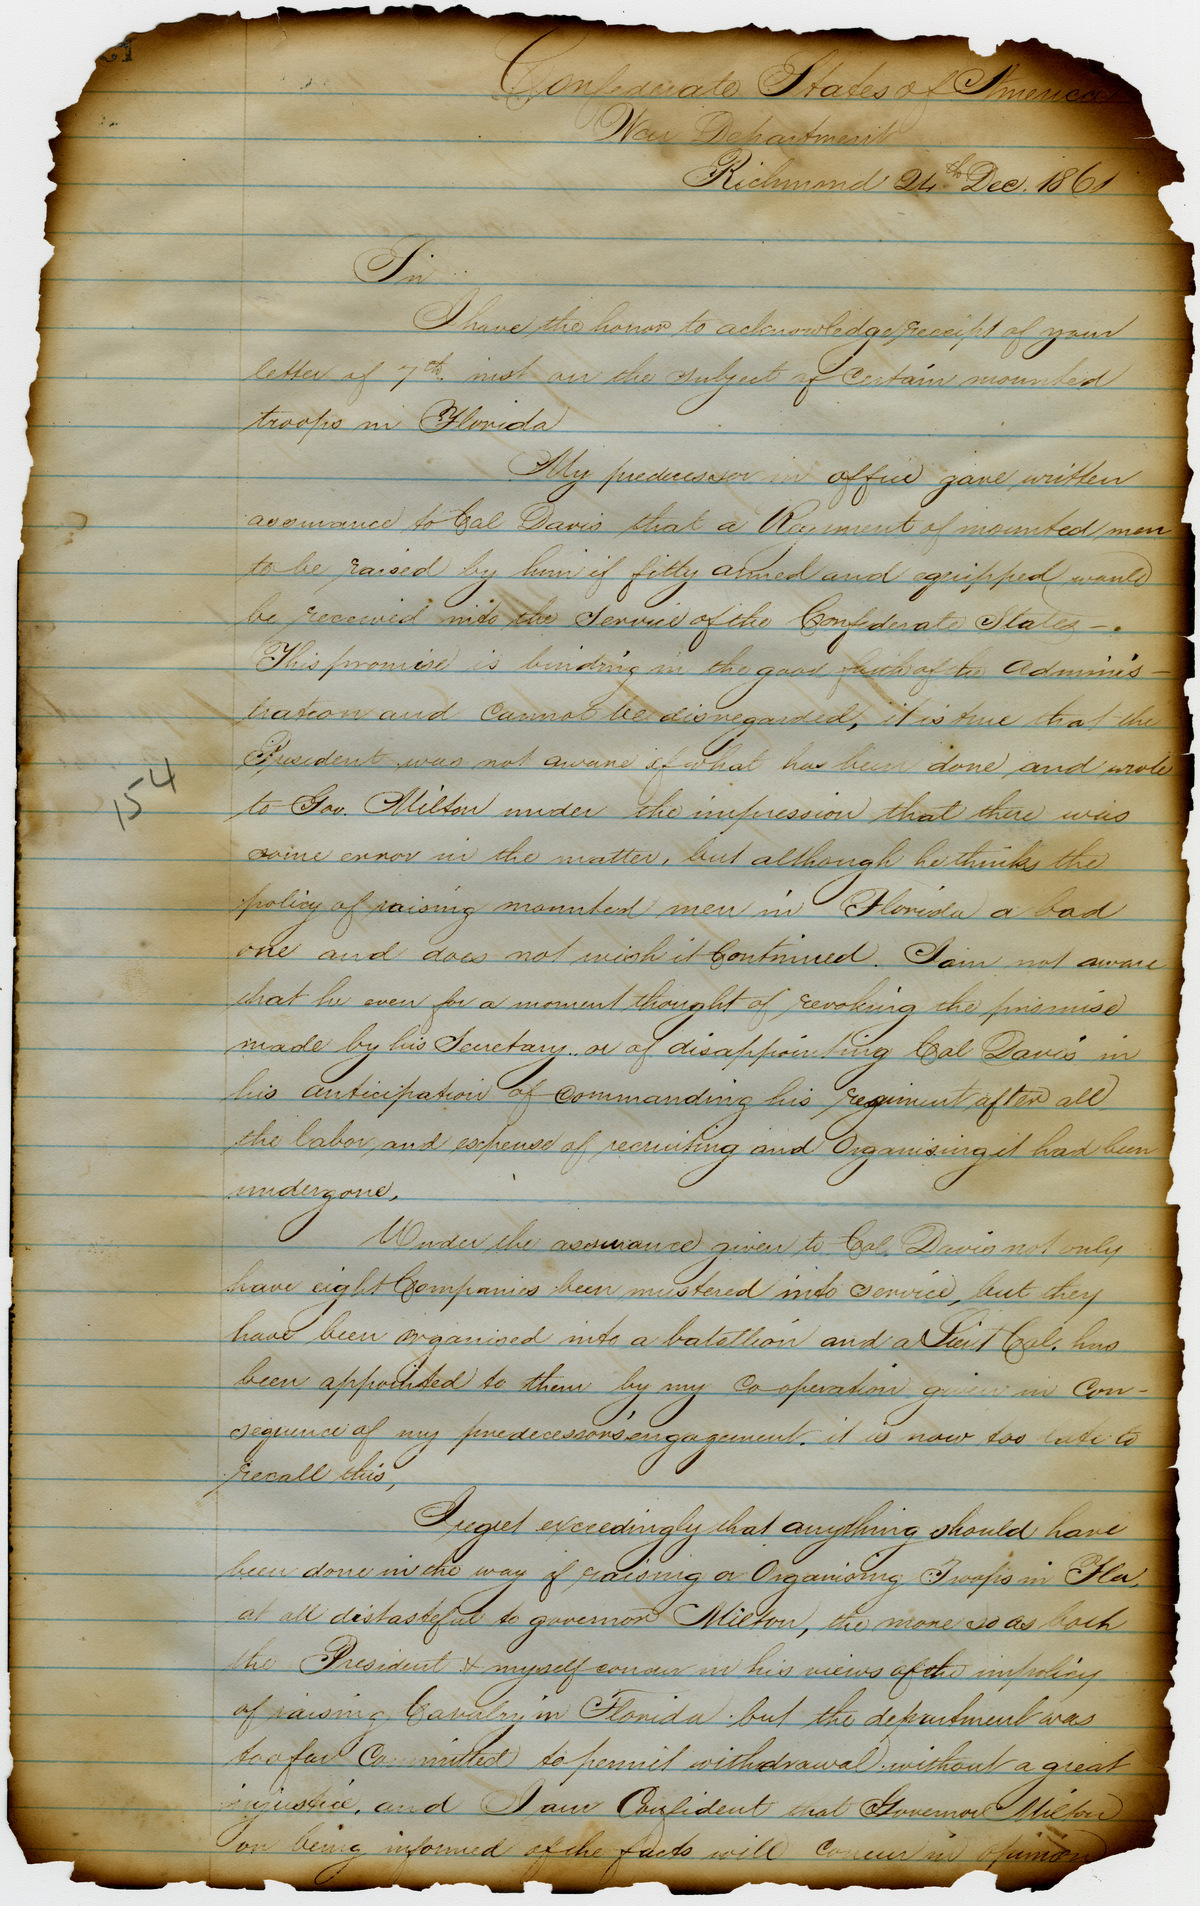 Confederate States of America
War Department
Richmond 24th Dec. 1861
Sir
I have the honor to acknowledge receipt of your
letter of 7th. inst on the subject of certain mounted
troops in Florida
My predecessor in office gave written
assurance to Col Davis that a Regiment of mounted men
to be raised by him if fitly armed and equipped would
be received into the service of the Confederate States -.
This promise is binding in the good faith of the Adminis-
tration and cannot be disregarded, it is true that the
President was not aware of what has been done and wrote
154
to Gov. Milton under the impression that there was
some error in the matter, but although he thinks the
policy of raising mounted men in Florida a bad
one and does not wish it Continued. I am not aware
that he even for a moment thought of revoking the promise
made by his Secretary.. or of disappointing Col Davis in
his anticipation of commanding his regiment after all
the labor and expense of recruiting and Organising it had been
undergone,
Under the assurance given to Col. Davis not only
have eight Companies been mustered into service, but they
have been organised into a batallion and a Lieut Col. has
been appointed to them by my co-operation given in Con-
sequence of my predecessor's engagement. it is now too late to
recall this,
I regret exceedingly that anything should have
been done in the way of raising or Organising Troops in Fla,
at all distasteful to governor Milton, the more so as both
the President & myself concur in his views of the impolicy
of raising Cavalry in Florida. but the department was
too far Committed to permit withdrawal without a great
injustice, and I am Confident that Governor Milton
on being informed of the facts will concur in opinion